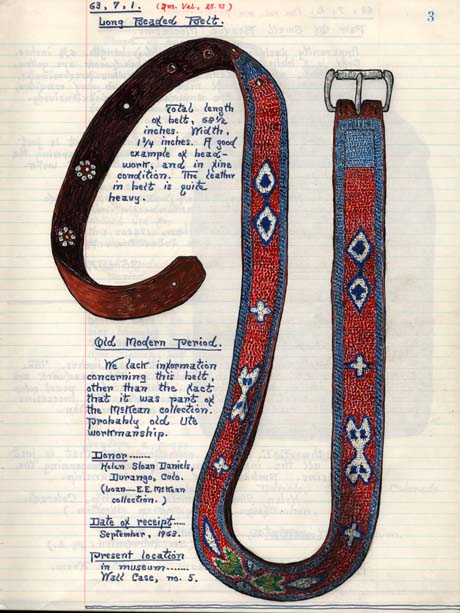 63, 7, 1. (Ins. Val., 25.00)
3
Long Beaded Belt.
Total length
of belt, 68 1/2
inches. Width,
1 3/4 inches. A good
example of bead-
work, and in fine
condition. The leather
in belt is quite
heavy.
Old Modern Period.
We lack information
concerning this belt,
other than the fact
that it was part of
the McKean collection.
Probably old Ute
workmanship.
Donor.......
Helen Sloan Daniels,
Durango, Colo.
(Loan—E.E. McKean
collection.)
Date of receipt.....
September, 1963.
Present location
in museum.......
Wall Case, no. 5.